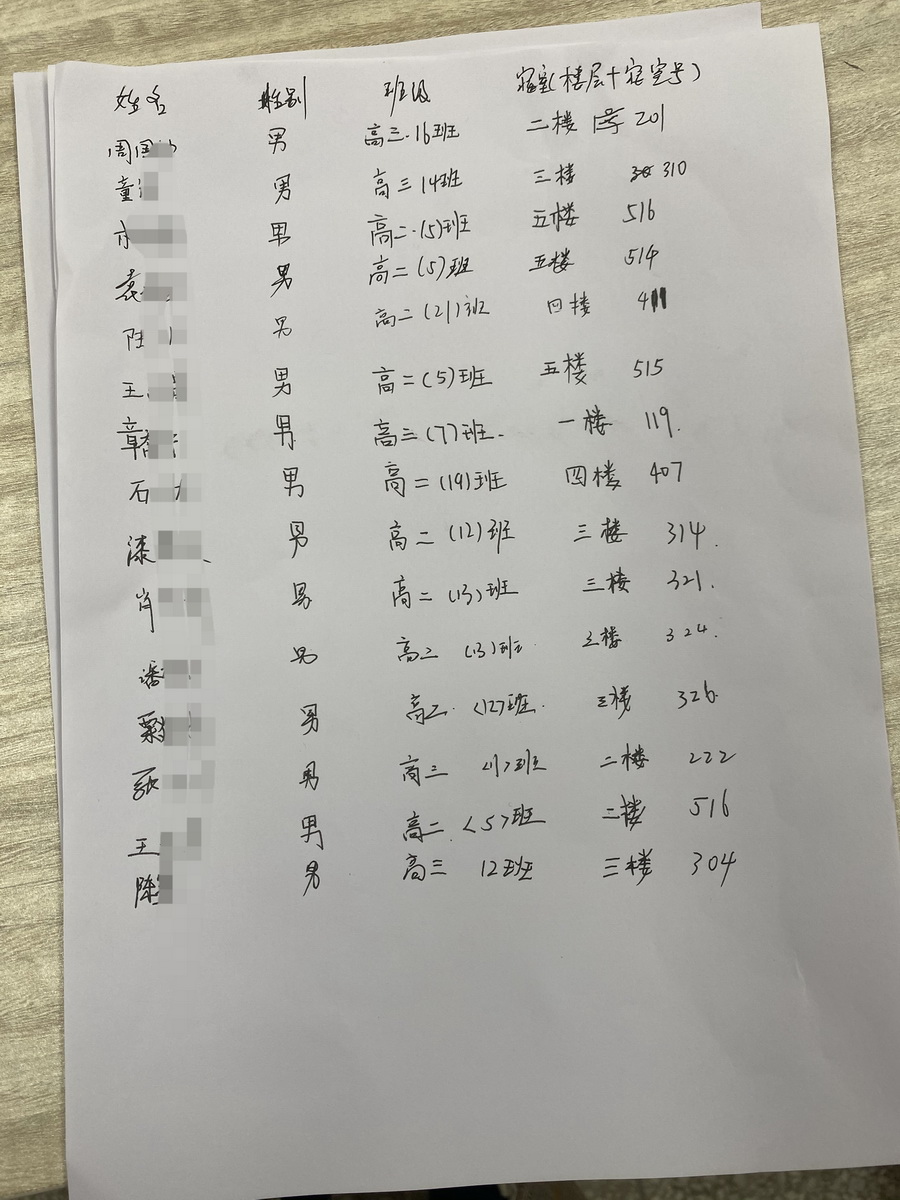 姓名 性别 班级 寝室(楼层+寝室号)
周国 男 高三·16班 二楼 201
童 男 高三14班 三楼 310
男 高二·(5)班 五楼 516
袁 男 高二(5)班 五楼 514
陈 男 高二(21)班 四楼 411
王 男 高二(5)班 五楼 515
章 男 高三(7)班. 一楼 119.
石 男 高二(19)班 四楼 407
漆 男 高二(12)班 三楼 314.
肖 男 高二(13)班 三楼 321.
潘 男 高二(13)班 三楼 324.
男 高二·<12>班. 三楼 326.
张 男 高三<1>班 二楼 222
王 男 高二.<5>班 二楼 516
陈 男 高三 12班 三楼 304